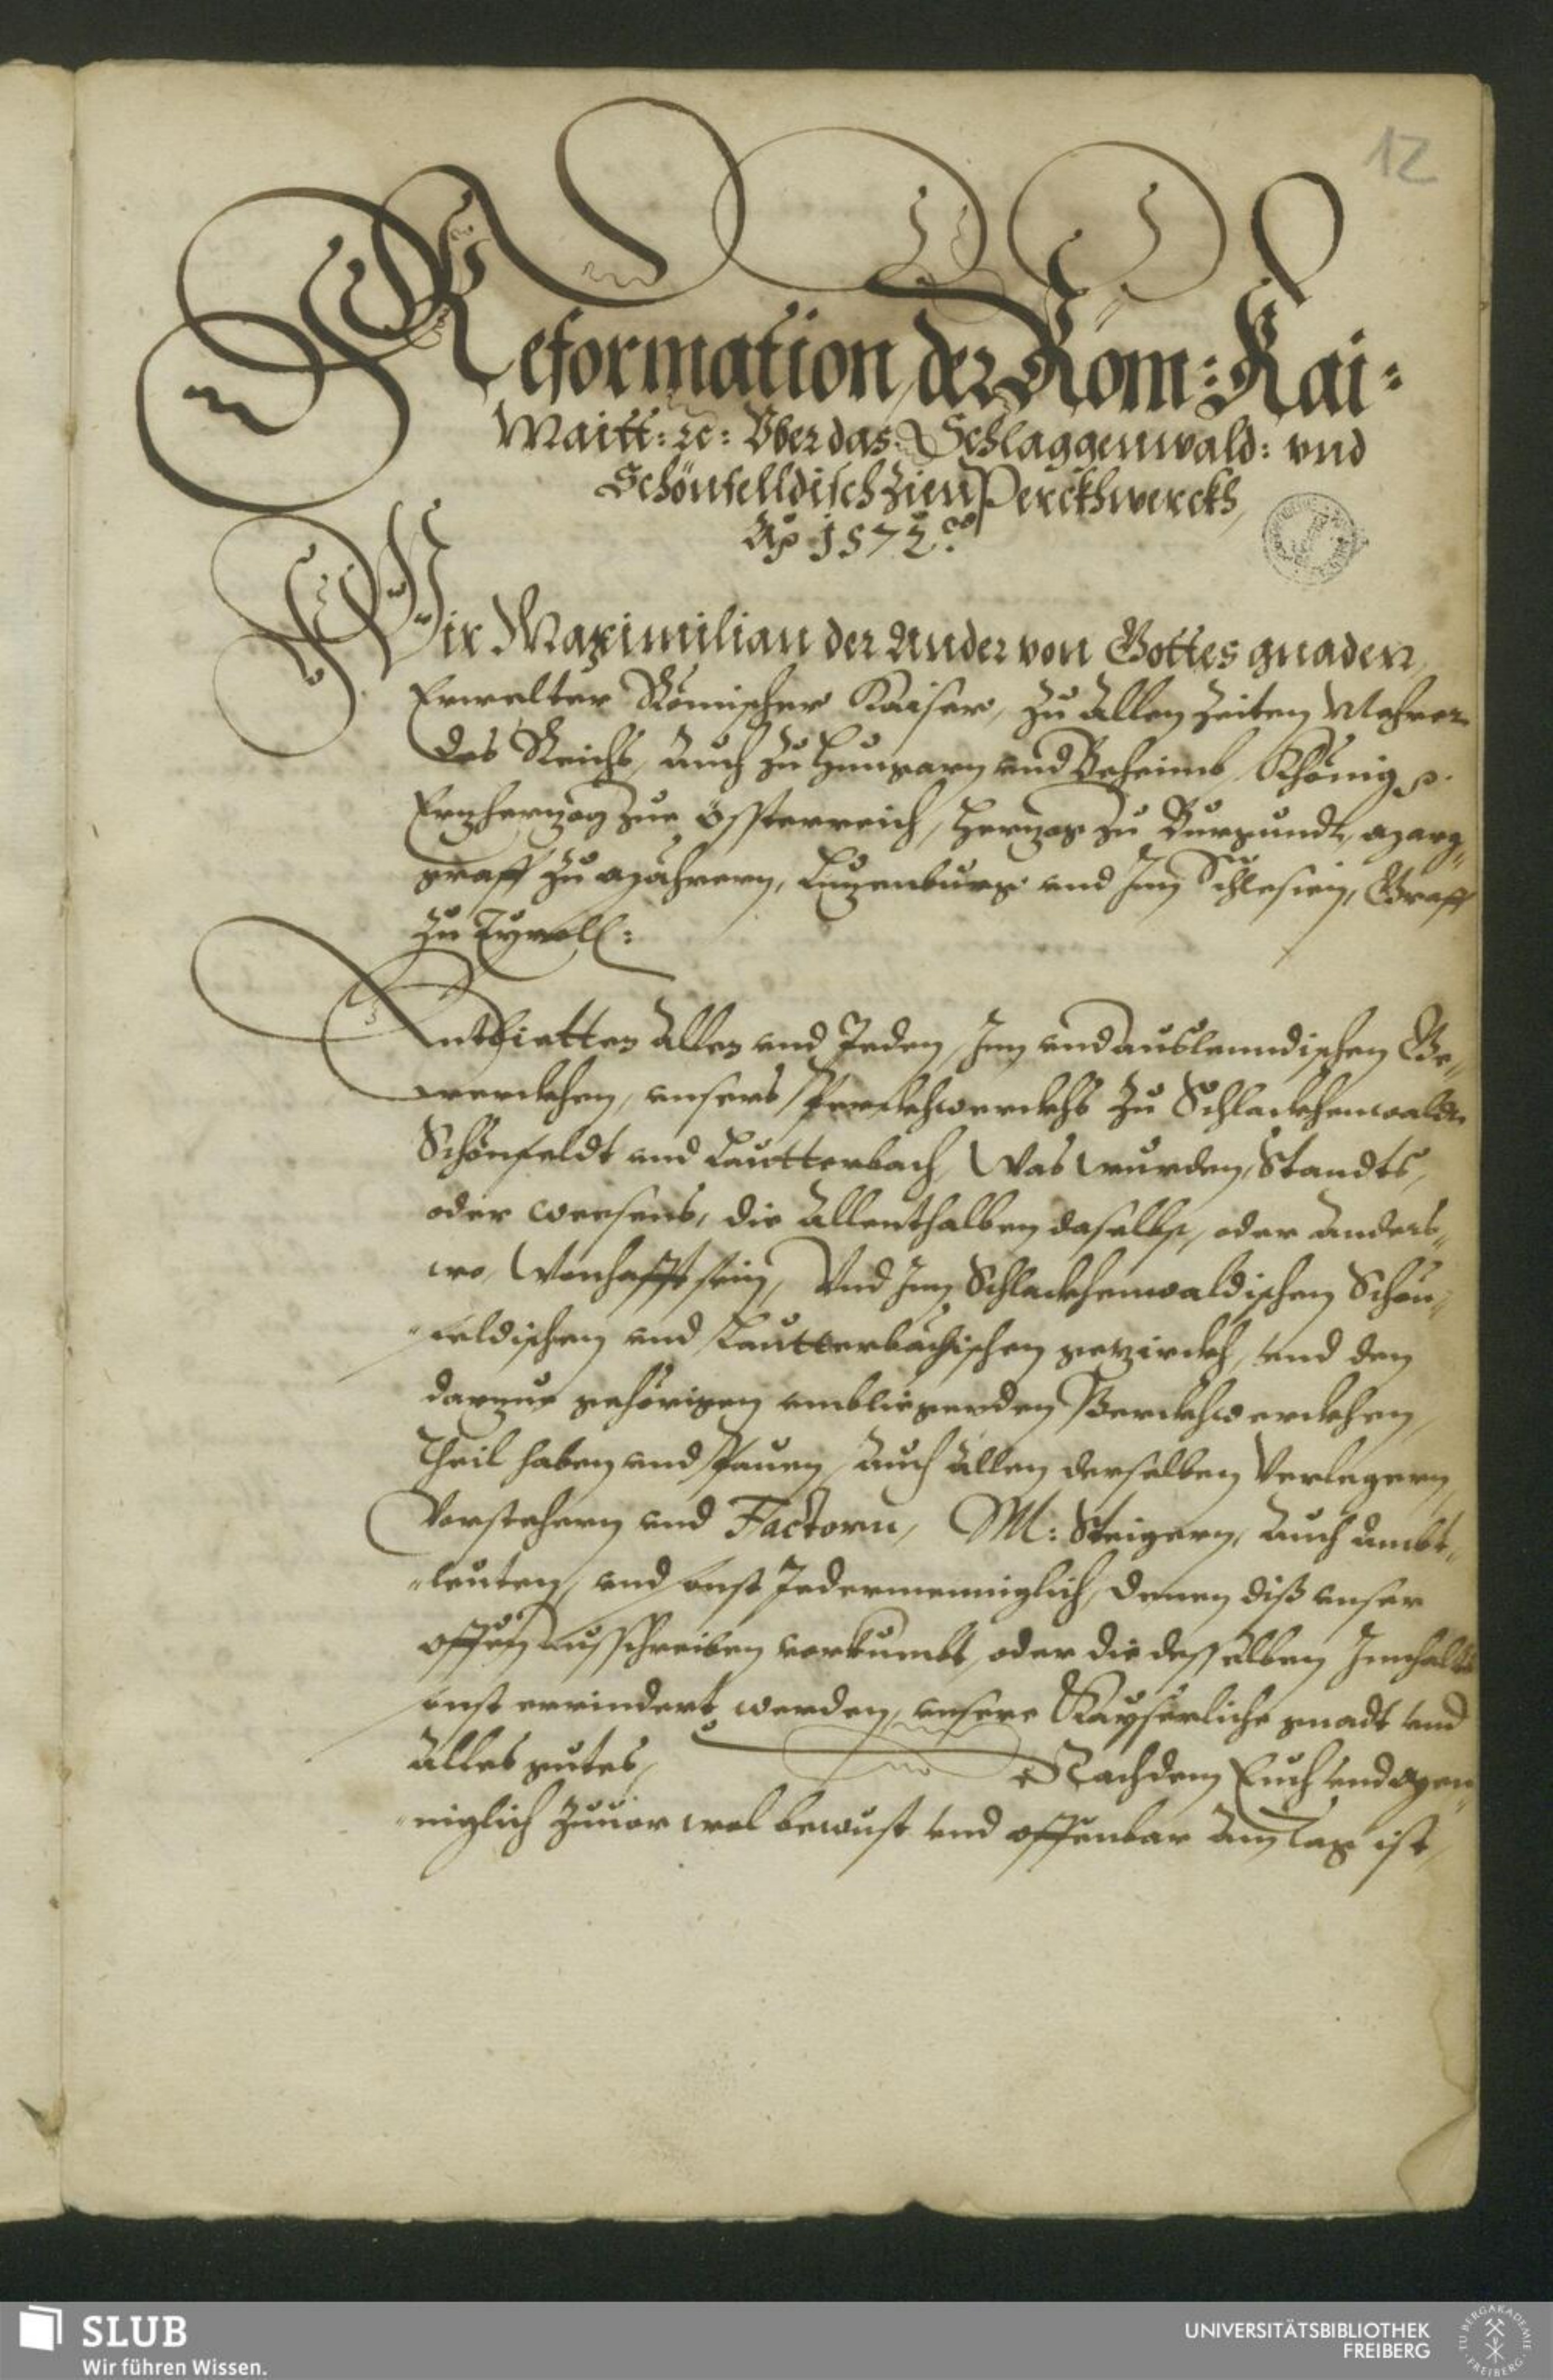 12
Reformation der Röm: Kai-
Maitt: zc: Vber das Schlaggenwald: und
Schönfelldisch Zien Perckhwerckh,
Ao 1572.
Wir Maximilian der Ander von Gottes gnaden,
Erwelter Römischer Kaiser, zu allen Zeiten Mehrer
des Reichs, auch zu Hungarn und Beheimb, Khönig
Erzherzog zue Össterreich, Herzog zu Burgundt, Marg-
graff zu Mährern, Luzenburg und Inn Schlesien, Graff
zu Tyroll:
Entbietten allen und Jeden, Inn und auslenndischen Ge-
werckhen, unsers Perckhwerckhs zu Schlackhenwaldt
Schönfeldt und Lautterbach, Was wurden, Standts,
oder weesens, die allenthalben daselbst, oder anders-
wo, Wonhafft sein, Und Inn Schlackhenwaldischen Schön-
feldischen und Lautterbachischen gezirckh, und den
darzue gehörigen umbligenden Berckhwerckhen,
Theil haben und Pauen, auch allen derselben Verlegern
Vorstehern und Factorn, M: Steigern, auch ambt-
leuten, und sonst Jedermenniglich, denen diß unser
offen ausschreiben vorkumbt, oder die desselben Innhalts
sonst erindert werden, unsere Kayserliche gnadt und
alles gutes, Nachdem Euch und Men-
niglich zuuor wol bewust und offenbar am tag ist,
SLUB
Wir führen Wissen.
UNIVERSITÄTSBIBLIOTHEK
FREIBERG
TU BERGAKADEMIE
FREIBERG